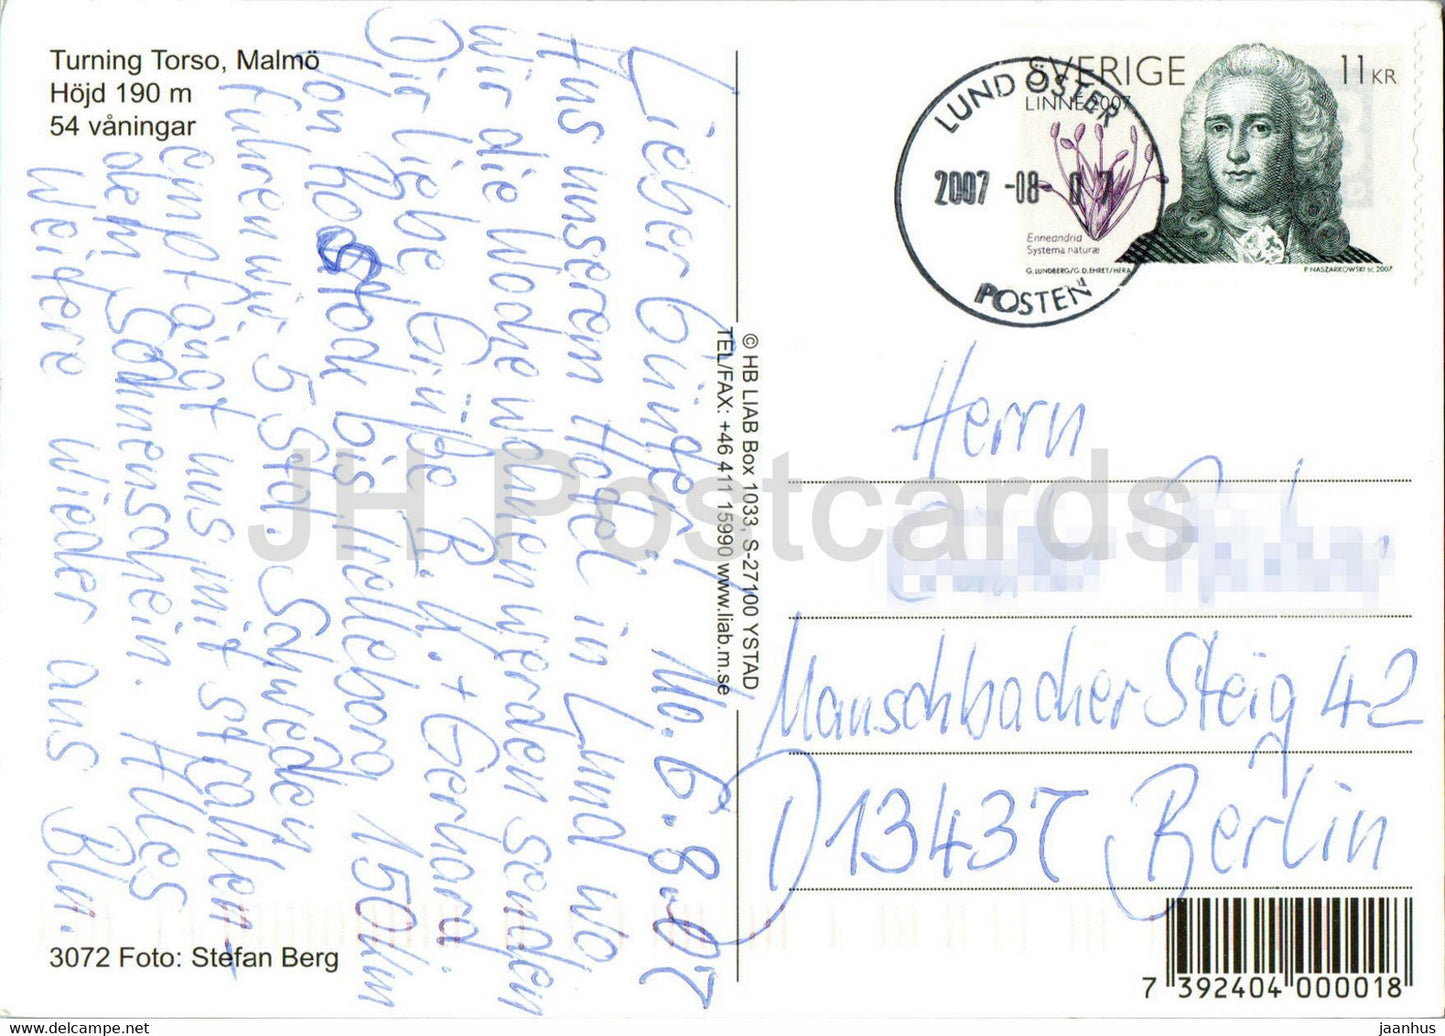 Turning Torso, Malmö
Höjd 190 m
54 våningar
Lieber Günter! Mo. 6.8.07
Aus unserem Hotel in Lund wo
wir die Woche wohnen werden senden
Dir liebe Grüße B. U. + Gerhard.
Von Rostock bis Trelleborg 150km
fuhren wir 5 Std. Schweden
empfängt uns mit strahlen-
dem Sonnenschein. Alles
Weitere wieder aus Bln.
3072 Foto: Stefan Berg
© HB LIAB Box 1033, S-27100 YSTAD
TEL/FAX: +46 411 15990 www.liab.m.se
SVERIGE 11 KR
LINNÉ 2007
Enneandria
Systema naturæ
G. LUNDBERG/G.D.EHRET/HERA
P NASZARKOWSKI SC 2007
LUND ÖSTER
2007 -08- 07
POSTEN
Herrn
Mauschbacher Steig 42
D 13437 Berlin
7 392404 000018
JH Postcards
jaanhus